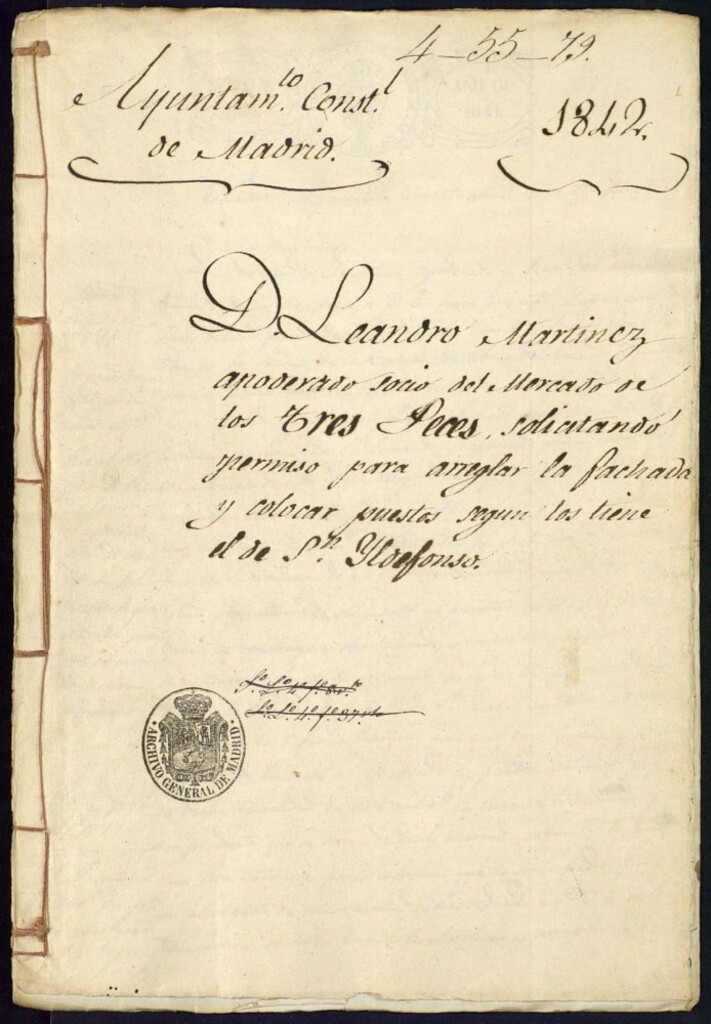 4-55-79.
Ayuntam.to Const.l
de Madrid.
1842.
D. Leandro Martinez,
apoderado socio del Mercado de
los Tres Peces, solicitando
permiso para arreglar la fachada
y colocar puestos segun los tiene
el de S.n Yldefonso.
ARCHIVO GENERAL DE MADRID